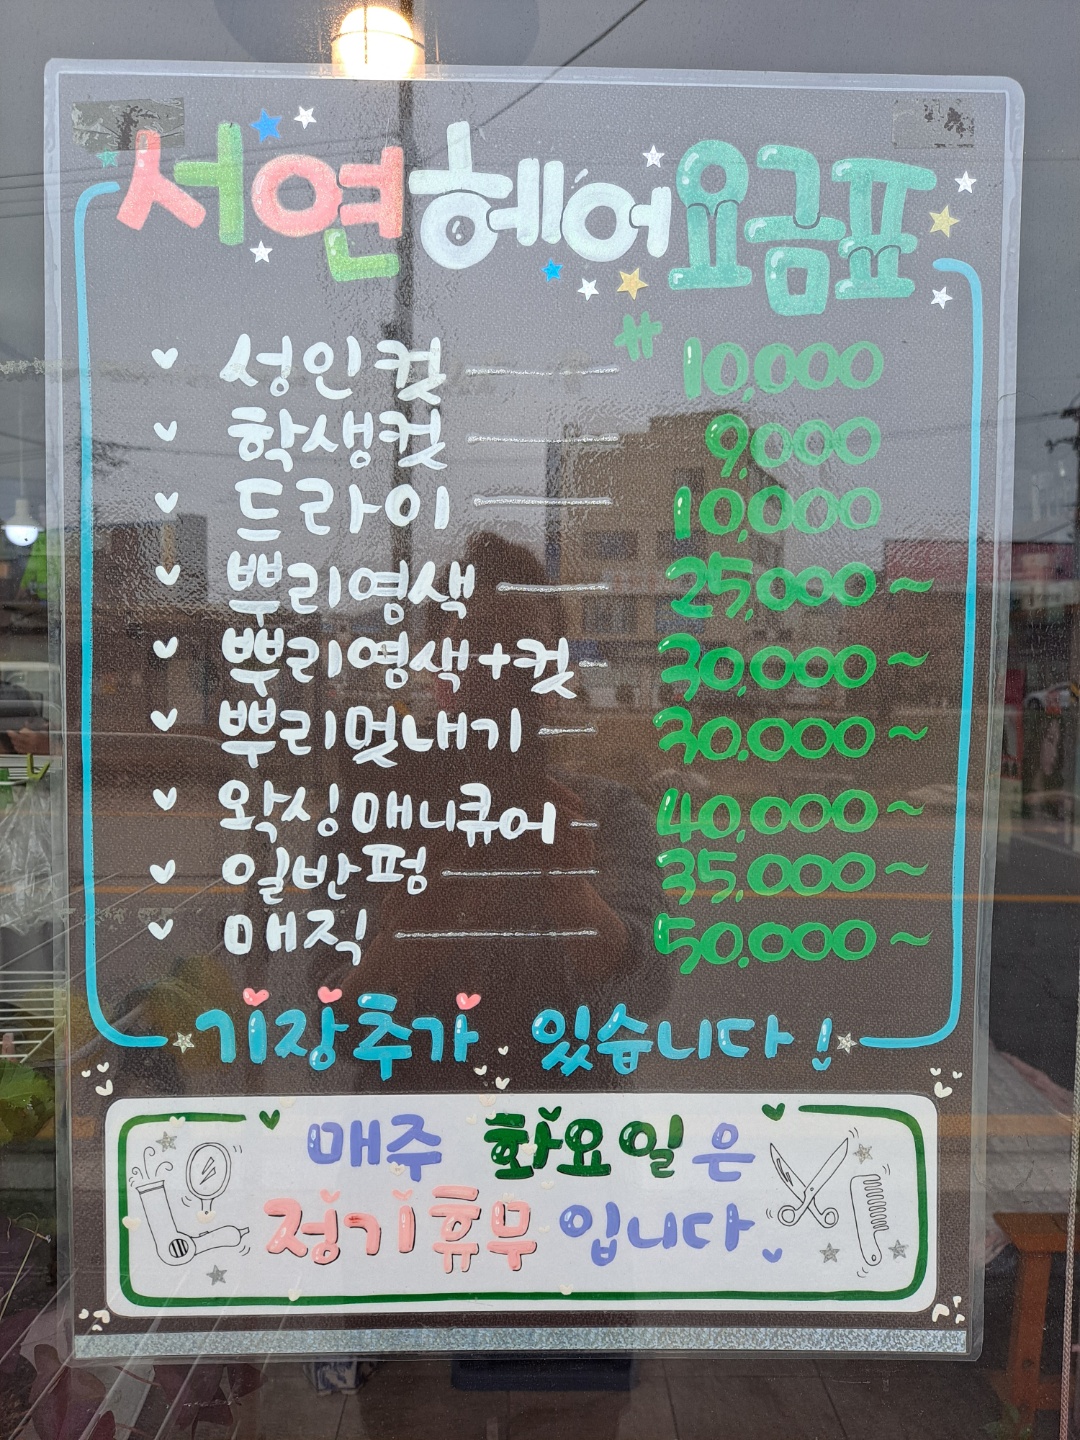 서연헤어요금표
성인컷 # 10,000
학생컷 9,000
드라이 10,000
뿌리염색 25,000~
뿌리염색+컷 30,000~
뿌리멋내기 30,000~
왁싱매니큐어 40,000~
일반펌 35,000~
매직 50,000~
기장추가 있습니다!
매주 화요일은
정기휴무 입니다